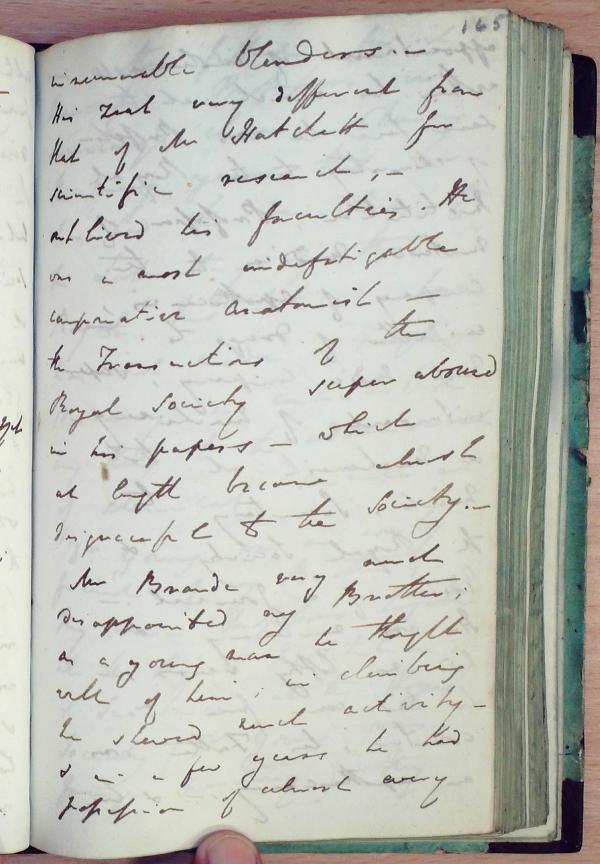 165
innumerable blunders. —
His zeal very different from
that of Mr Hatchett for
scientific research; —
outlived his faculties. He
was a most indefatigable
comparative anatomist —
the Transactions of the
Royal Society superabound
in his papers — which
at length became almost
disgraceful to the Society. —
Mr Brande very much
disappointed my Brother;
as a young man he thought
well of him; in climbing
he shewed much activity —
& in a few years he had
possession of almost every